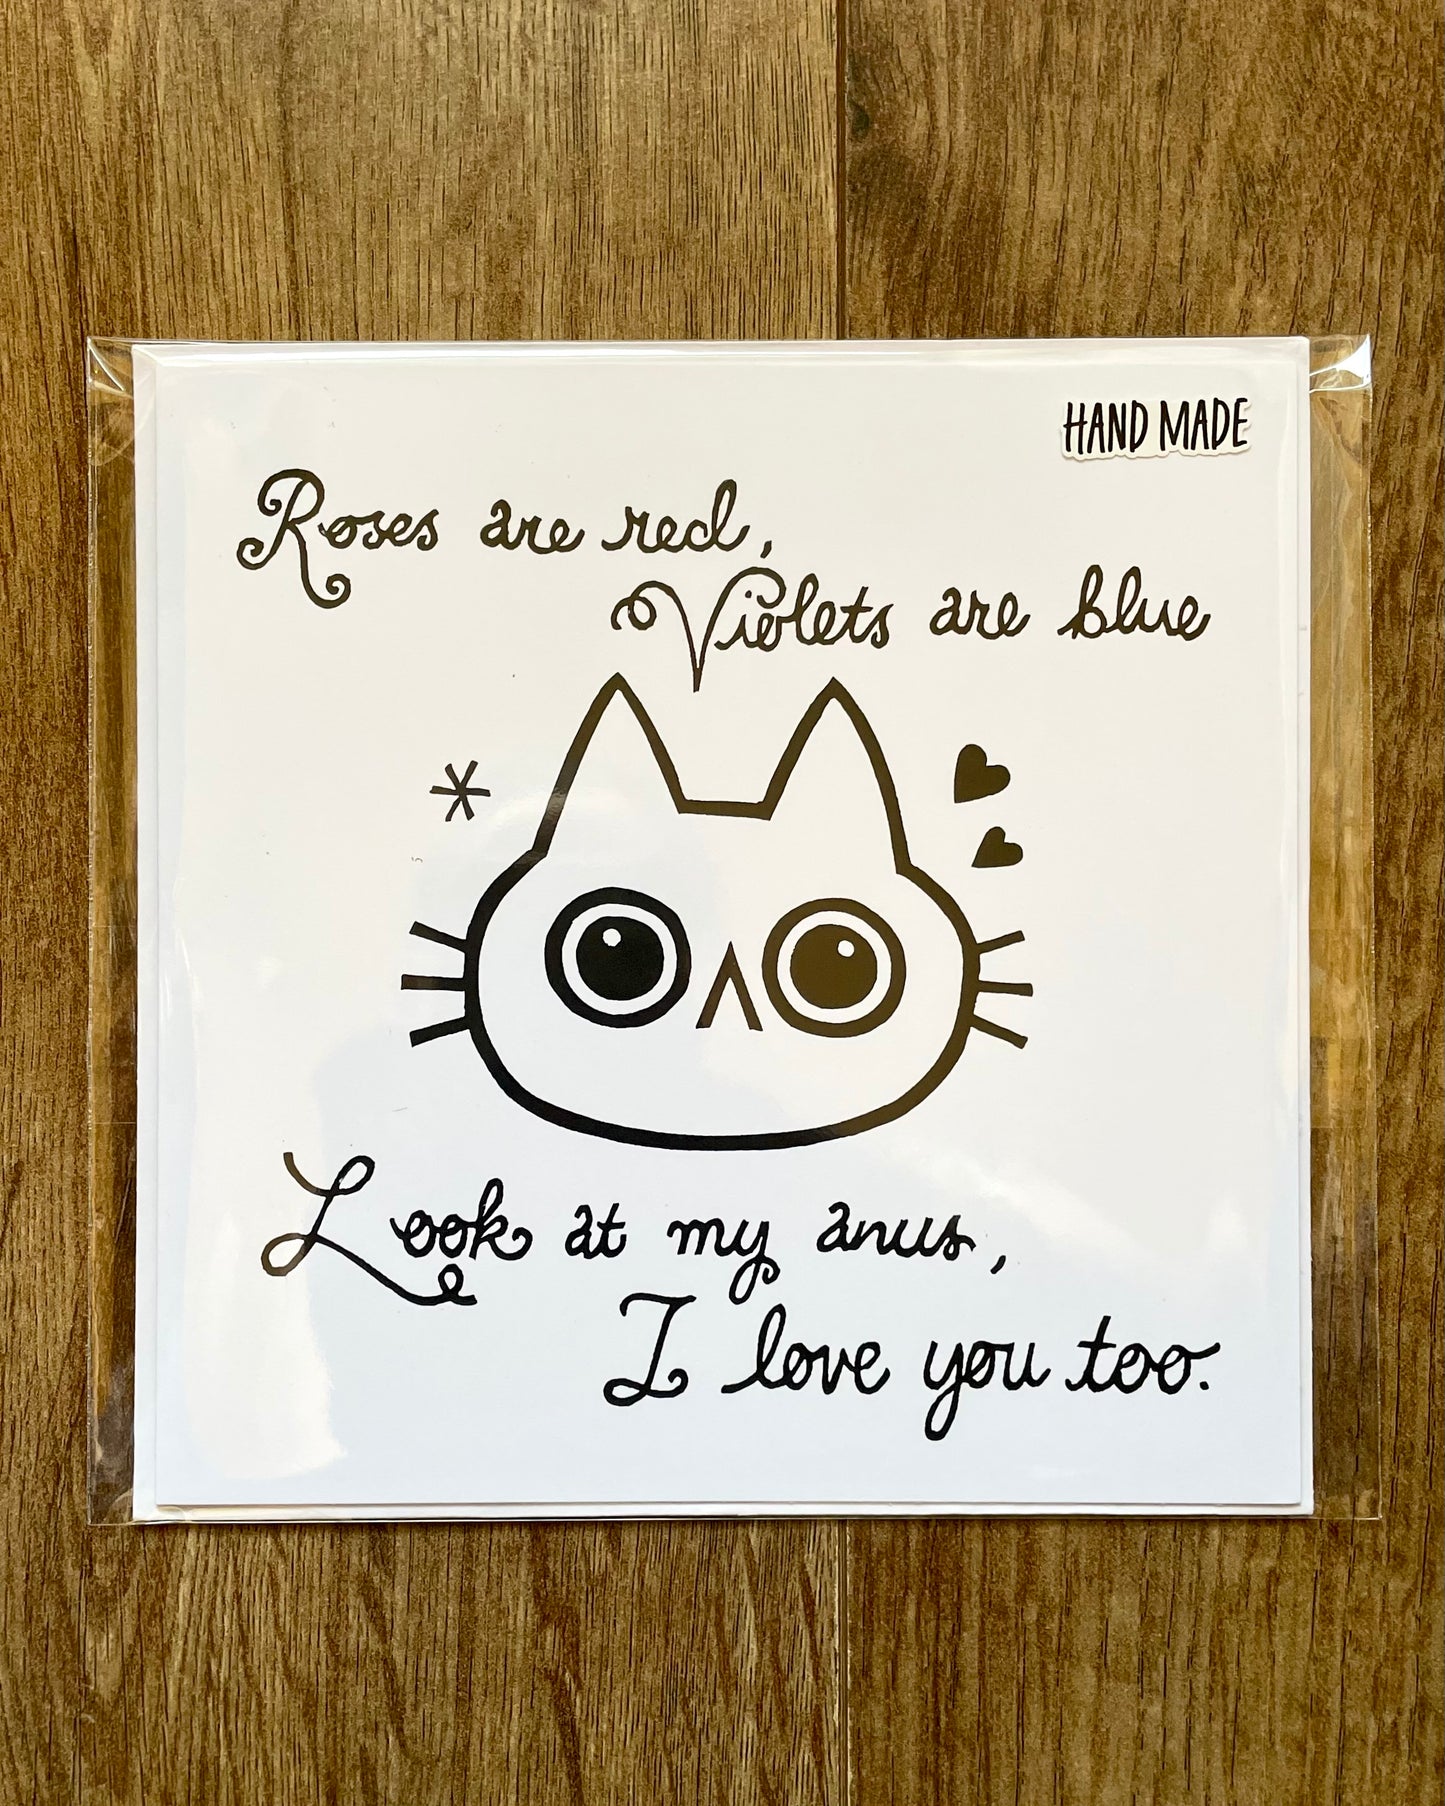 HAND MADE
Roses are red,
Violets are blue
Look at my anus,
I love you too.